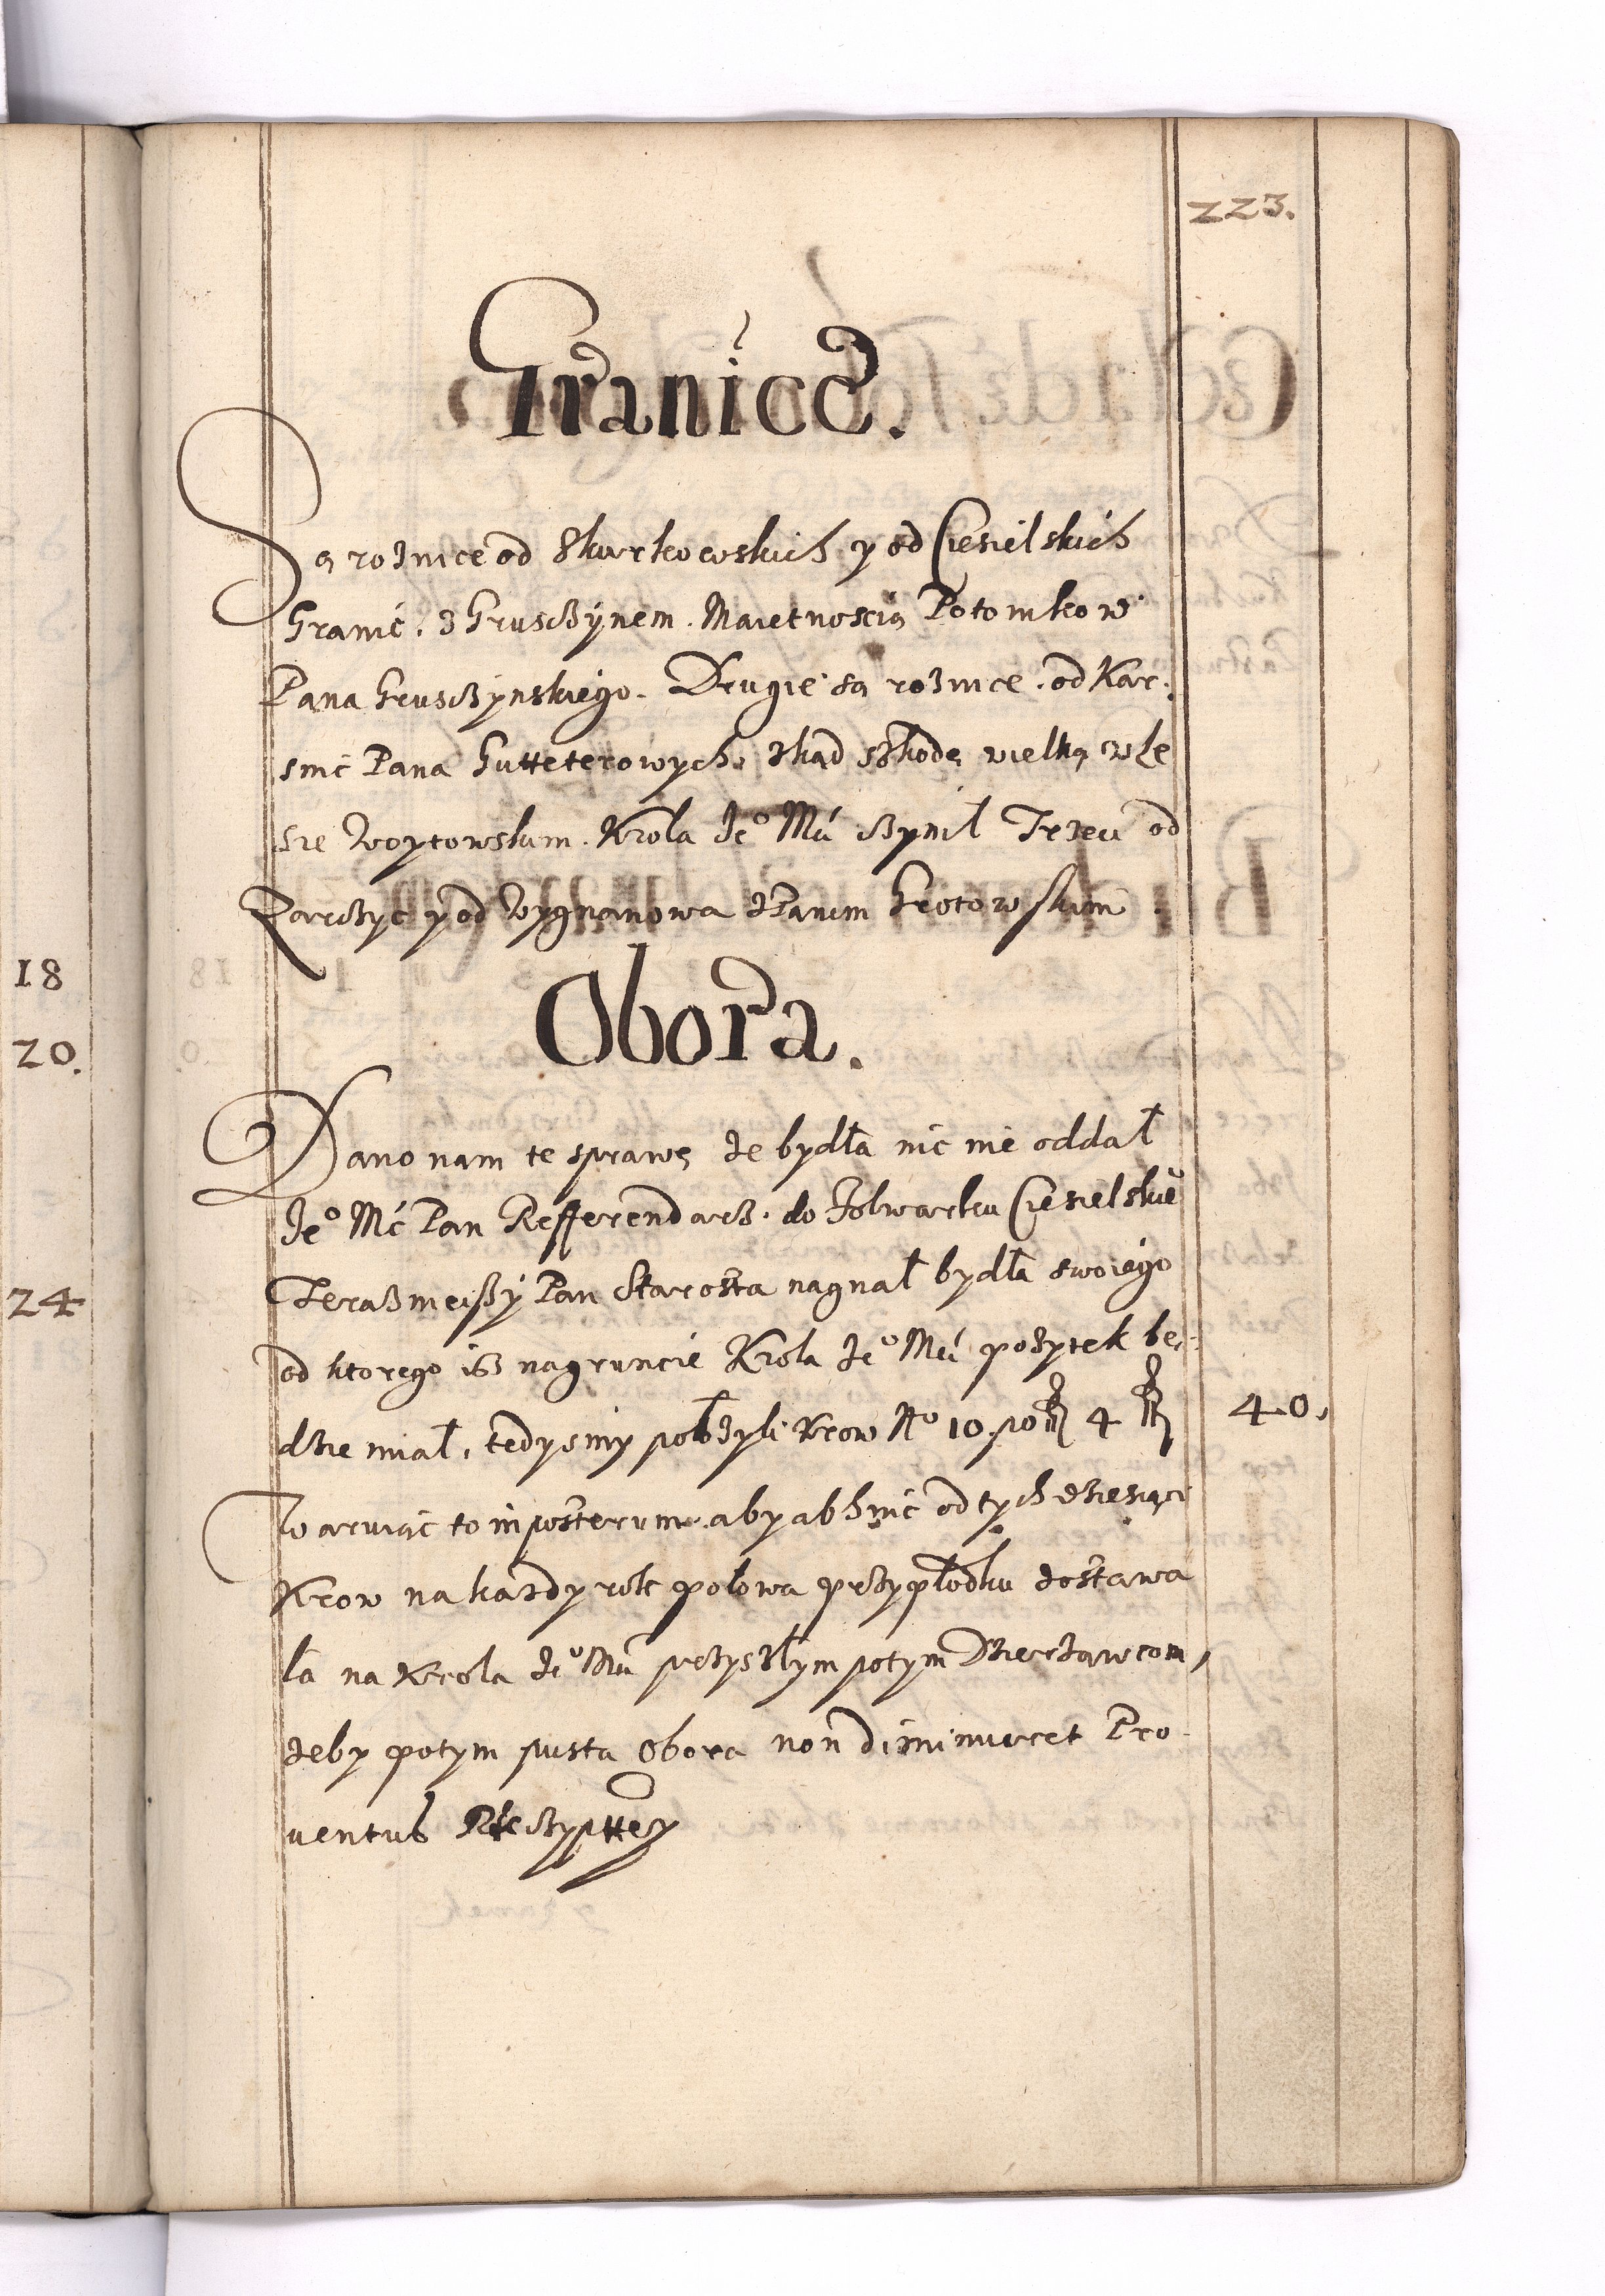 223.
Granice.
Są roznice od Skurkowskich y od Ciesielskich
Granic. z Gruszczynem. Maietnoscią Potomkow
Pana Gruszczynskiego. Drugie są roznice. od Kar-
snic Pana Gutteterowych. zkąd szkodę wielką w le
sie Woytowskim. Krola Jeo Mći czynił Trzeci od
Zarczyc y od Wygnanowa z Panem Grotowskim
Obora.
Dano nam te sprawę ze bydła nic nie oddał
Jeo Mć Pan Refferendarz. do Folwarku Ciesielskie
Teraznieiszy Pan Starosta nagnał bydła swoiego
od ktorego isz na gruncie Krola Jeo Mći pozytek bę-
dzie miał, tedysmy położyli Krow No 10 po 4
40.
Waruiąc to in posterum. aby ab hinc od tych dziesiąci
Krow na kazdy rok połowa przypłodku zostawa
ła na Krola Jeo Mći przyszłym potym Dzierzawcom,
zeby potym pusta Obora non diminueret Pro-
ventus
18
20.
24